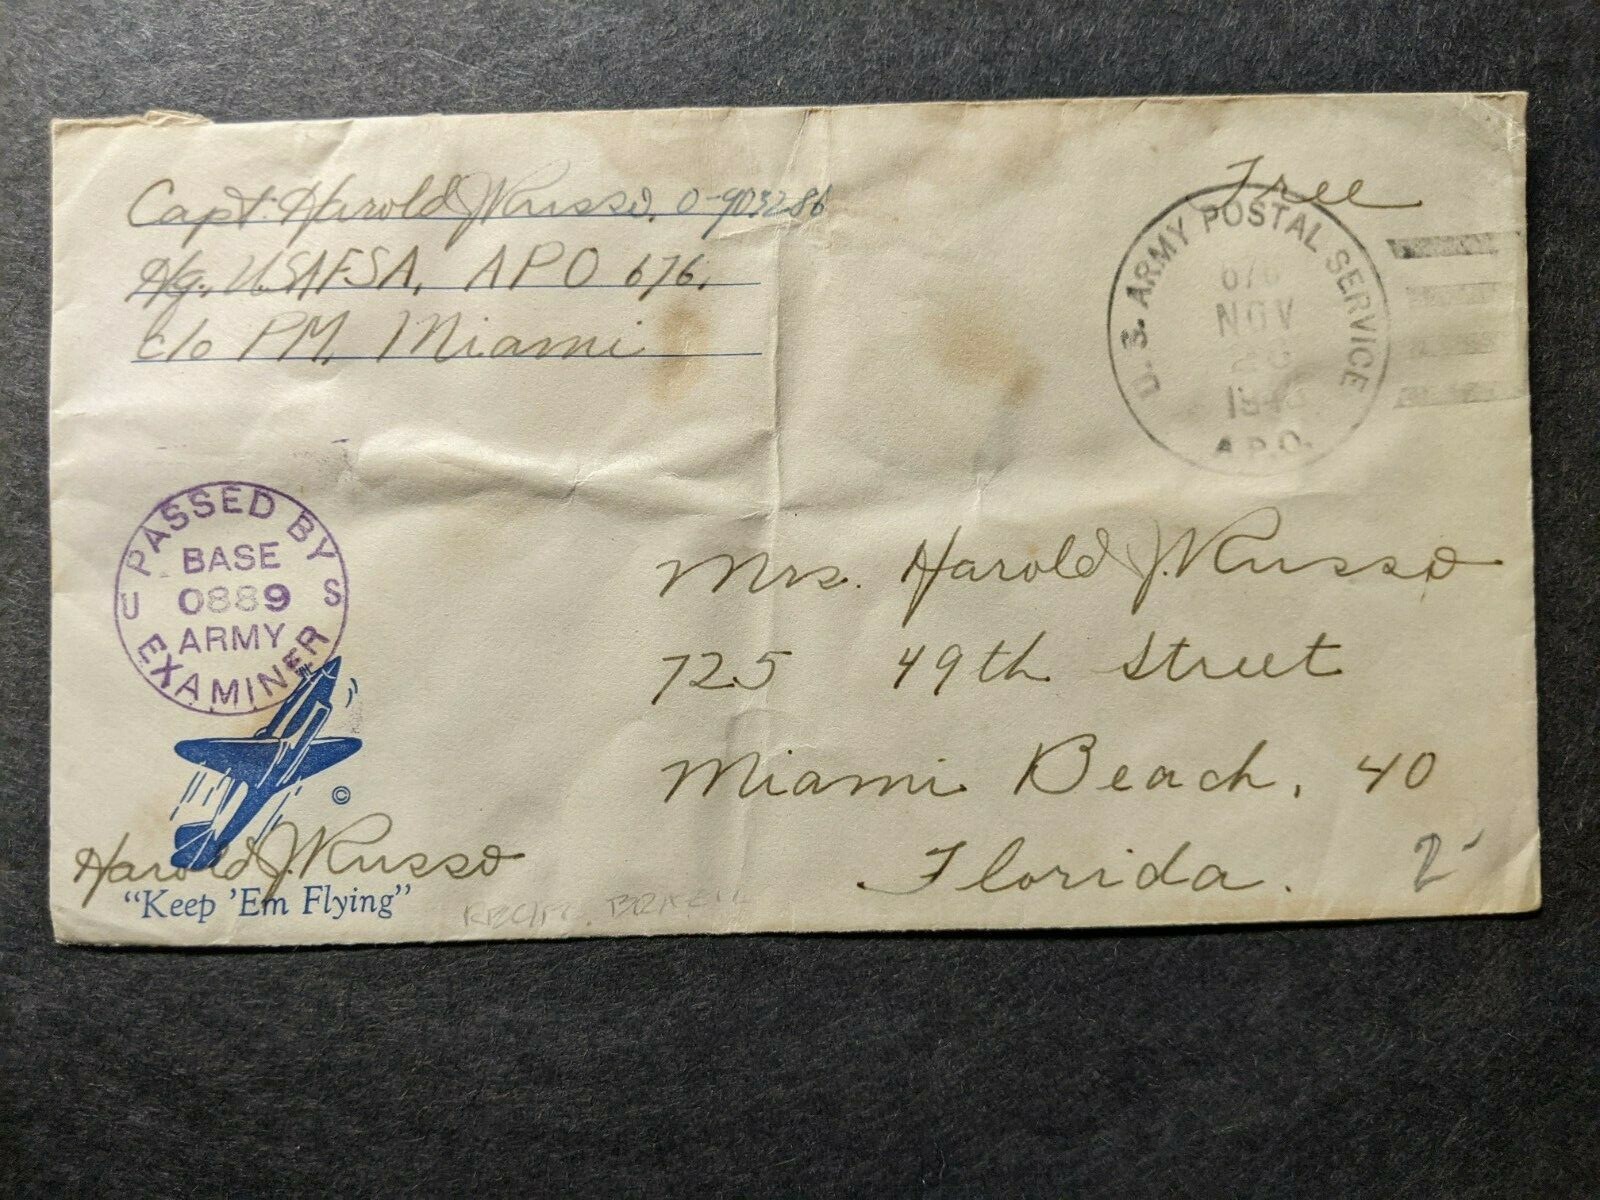 Capt. Harold J. Russo. O-903286
Hq. USAFSA, APO 676,
c/o PM, Miami
Free
U. S. ARMY POSTAL SERVICE
676
NOV
A.P.O.
PASSED BY
BASE
U 0889 S
ARMY
EXAMINER
Mrs. Harold J. Russo
725 49th Street
Miami Beach, 40
Florida.
2
©
Harold J. Russo
"Keep 'Em Flying"